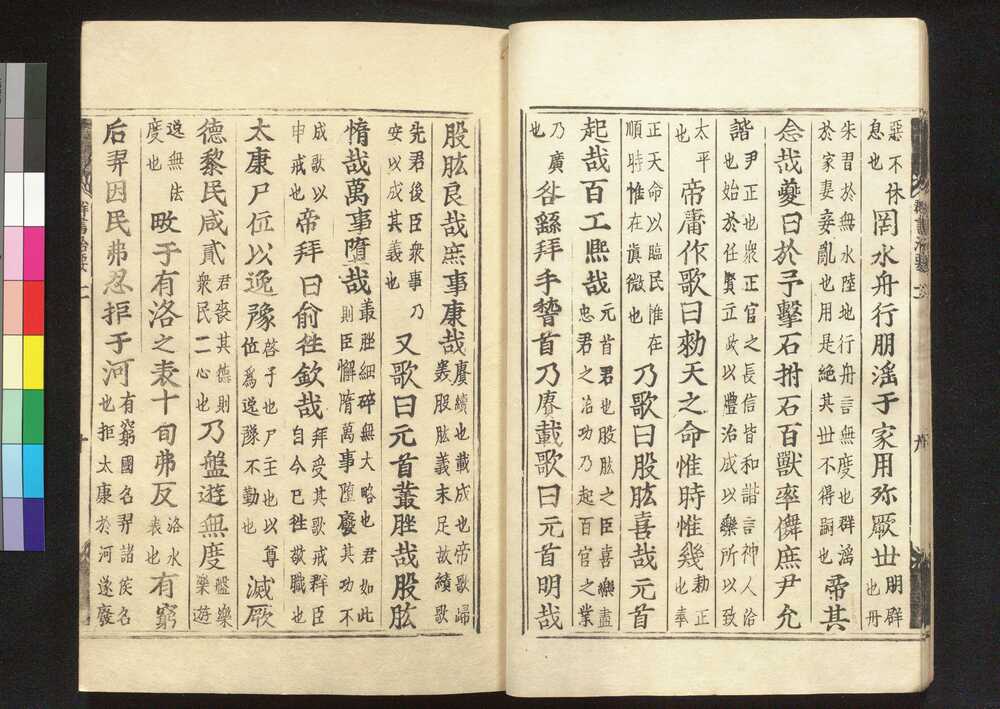 惡不休息也罔水舟行朋滛于家用殄厥世朋群也丹
朱習於無水陸地行舟言無度也群滛於家妻妾亂也用是絶其世不得嗣也帝其
念哉夔曰於予擊石拊石百獸率儛庶尹允
諧尹正也衆正官之長信皆和諧言神人洽也始於任賢立政以禮治成以樂所以致
太平也帝庸作歌曰勑天之命惟時惟幾勑正也奉
正天命以臨民惟在順時惟在慎微也乃歌曰股肱喜哉元首
起哉百工熈哉元首君也股肱之臣喜樂盡忠君之治功乃起百官之業
乃廣也咎繇拜手稽首乃賡載歌曰元首明哉
股肱良哉庶事康哉賡續也載成也帝歌歸美股肱義未足故續歌
先君後臣衆事乃安以成其義也又歌曰元首叢脞哉股肱
惰哉萬事墮哉叢脞細碎無大略也君如此則臣懈惰萬事墮廢其功不
成歌以申戒也帝拜曰俞往欽哉拜受其歌戒群臣自今已往敬職也
太康尸位以逸豫啓子也尸主也以尊位爲逸豫不勤也滅厥
德黎民咸貳君喪其德則衆民二心也乃盤遊無度盤樂樂遊
逸無法度也畋于有洛之表十旬弗反洛水表也有窮
后羿因民弗忍拒于河有窮國名羿諸侯名也拒太康於河遂廢
群書治要二
十